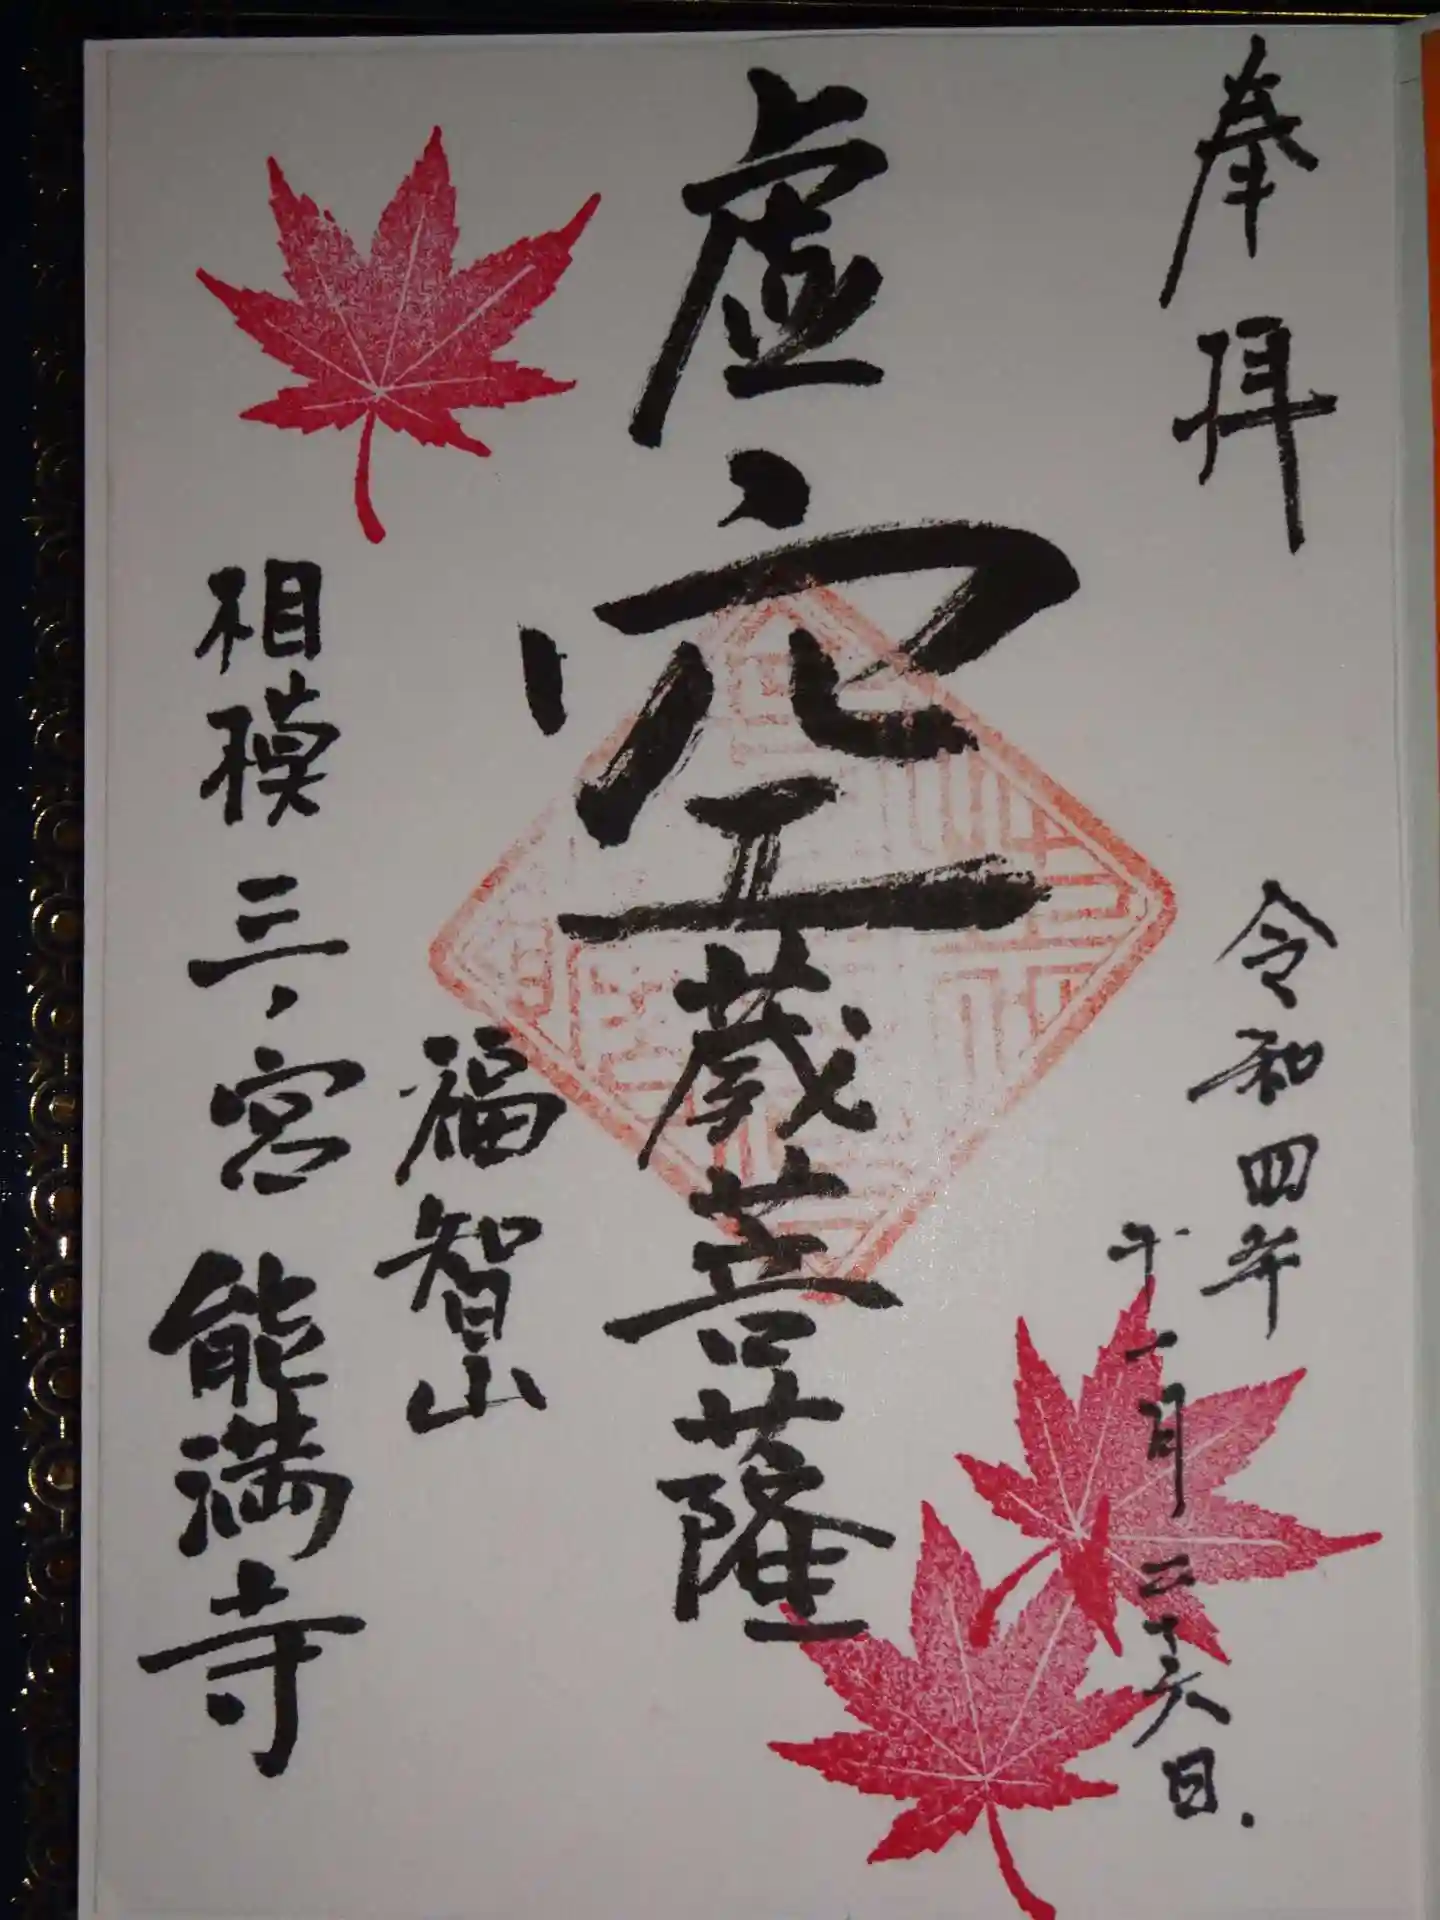 奉拝
令和四年
十一月二十六日.
虚空蔵菩薩
福智山
相模三ノ宮 能満寺